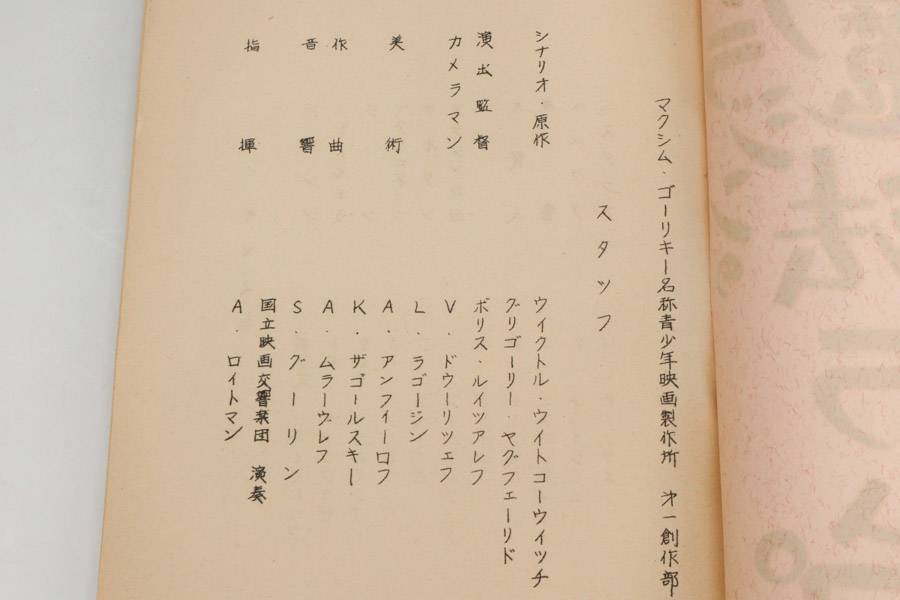 マクシム・ゴーリキー名称青少年映画製作所 第一創作部
スタッフ
シナリオ・原作 ウイクトル・ウイトコーウイッチ
グリゴーリー・ヤグフェーリド
演出監督 ボリス・ルイツアレフ
カメラマン V・ドウーリツェフ
L・ラゴージン
美術 A・アンフィーロフ
K・ザゴールスキー
作曲 A・ムラーヴレフ
音響 S・グーリン
国立映画交響楽団 演奏
指揮 A・ロイトマン